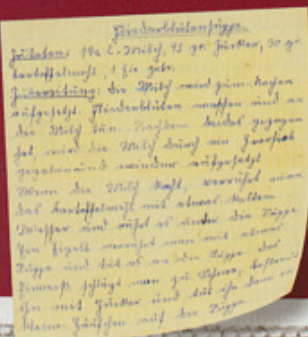 Fliederblütensuppe.
Zutaten: 1/2 l. Milch, 45 gr. Zucker, 30 gr.
Kartoffelmehl, 1 Ei
Zubereitung: Die Milch wird zum Kochen
aufgesetzt. Fliederblüten waschen und in
die Milch tun. Nachdem beides gezogen
hat, wird die Milch durch ein
wieder aufgesetzt.
Wenn die Milch kocht, verrührt man
das Kartoffelmehl mit etwas kaltem
Wasser und rührt es unter die Suppe.
Das Eigelb verrührt man mit etwas
Suppe und tut es an die Suppe. Das
Eiweiß schlägt man zu Schnee,
ihn mit Zucker und tut ihn dann in
kleine Häufchen auf die Suppe.